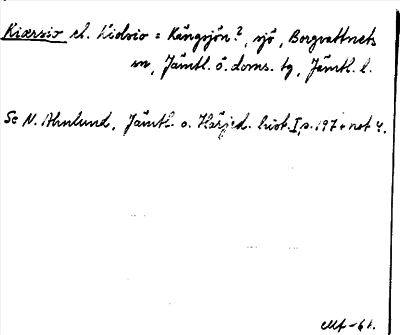 Kiærsio el. Lidsio = Kångsjön?, sjö, Borgvattnets
sn, Jämtl. ö. doms. tg, Jämtl. l.
Se N. Ahnlund, Jämtl. o. Härjed. hist. I, s. 197 + not 4.
-61.